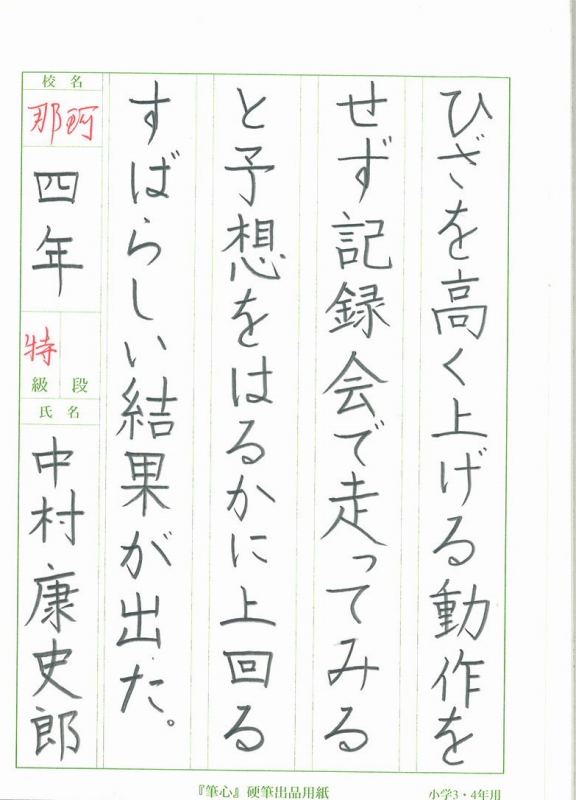 ひざを高く上げる動作を
せず記録会で走ってみる
と予想をはるかに上回る
すばらしい結果が出た。
校名
那珂
四年
特
級 段
氏名
中村康史郎
『筆心』硬筆出品用紙
小学3・4年用